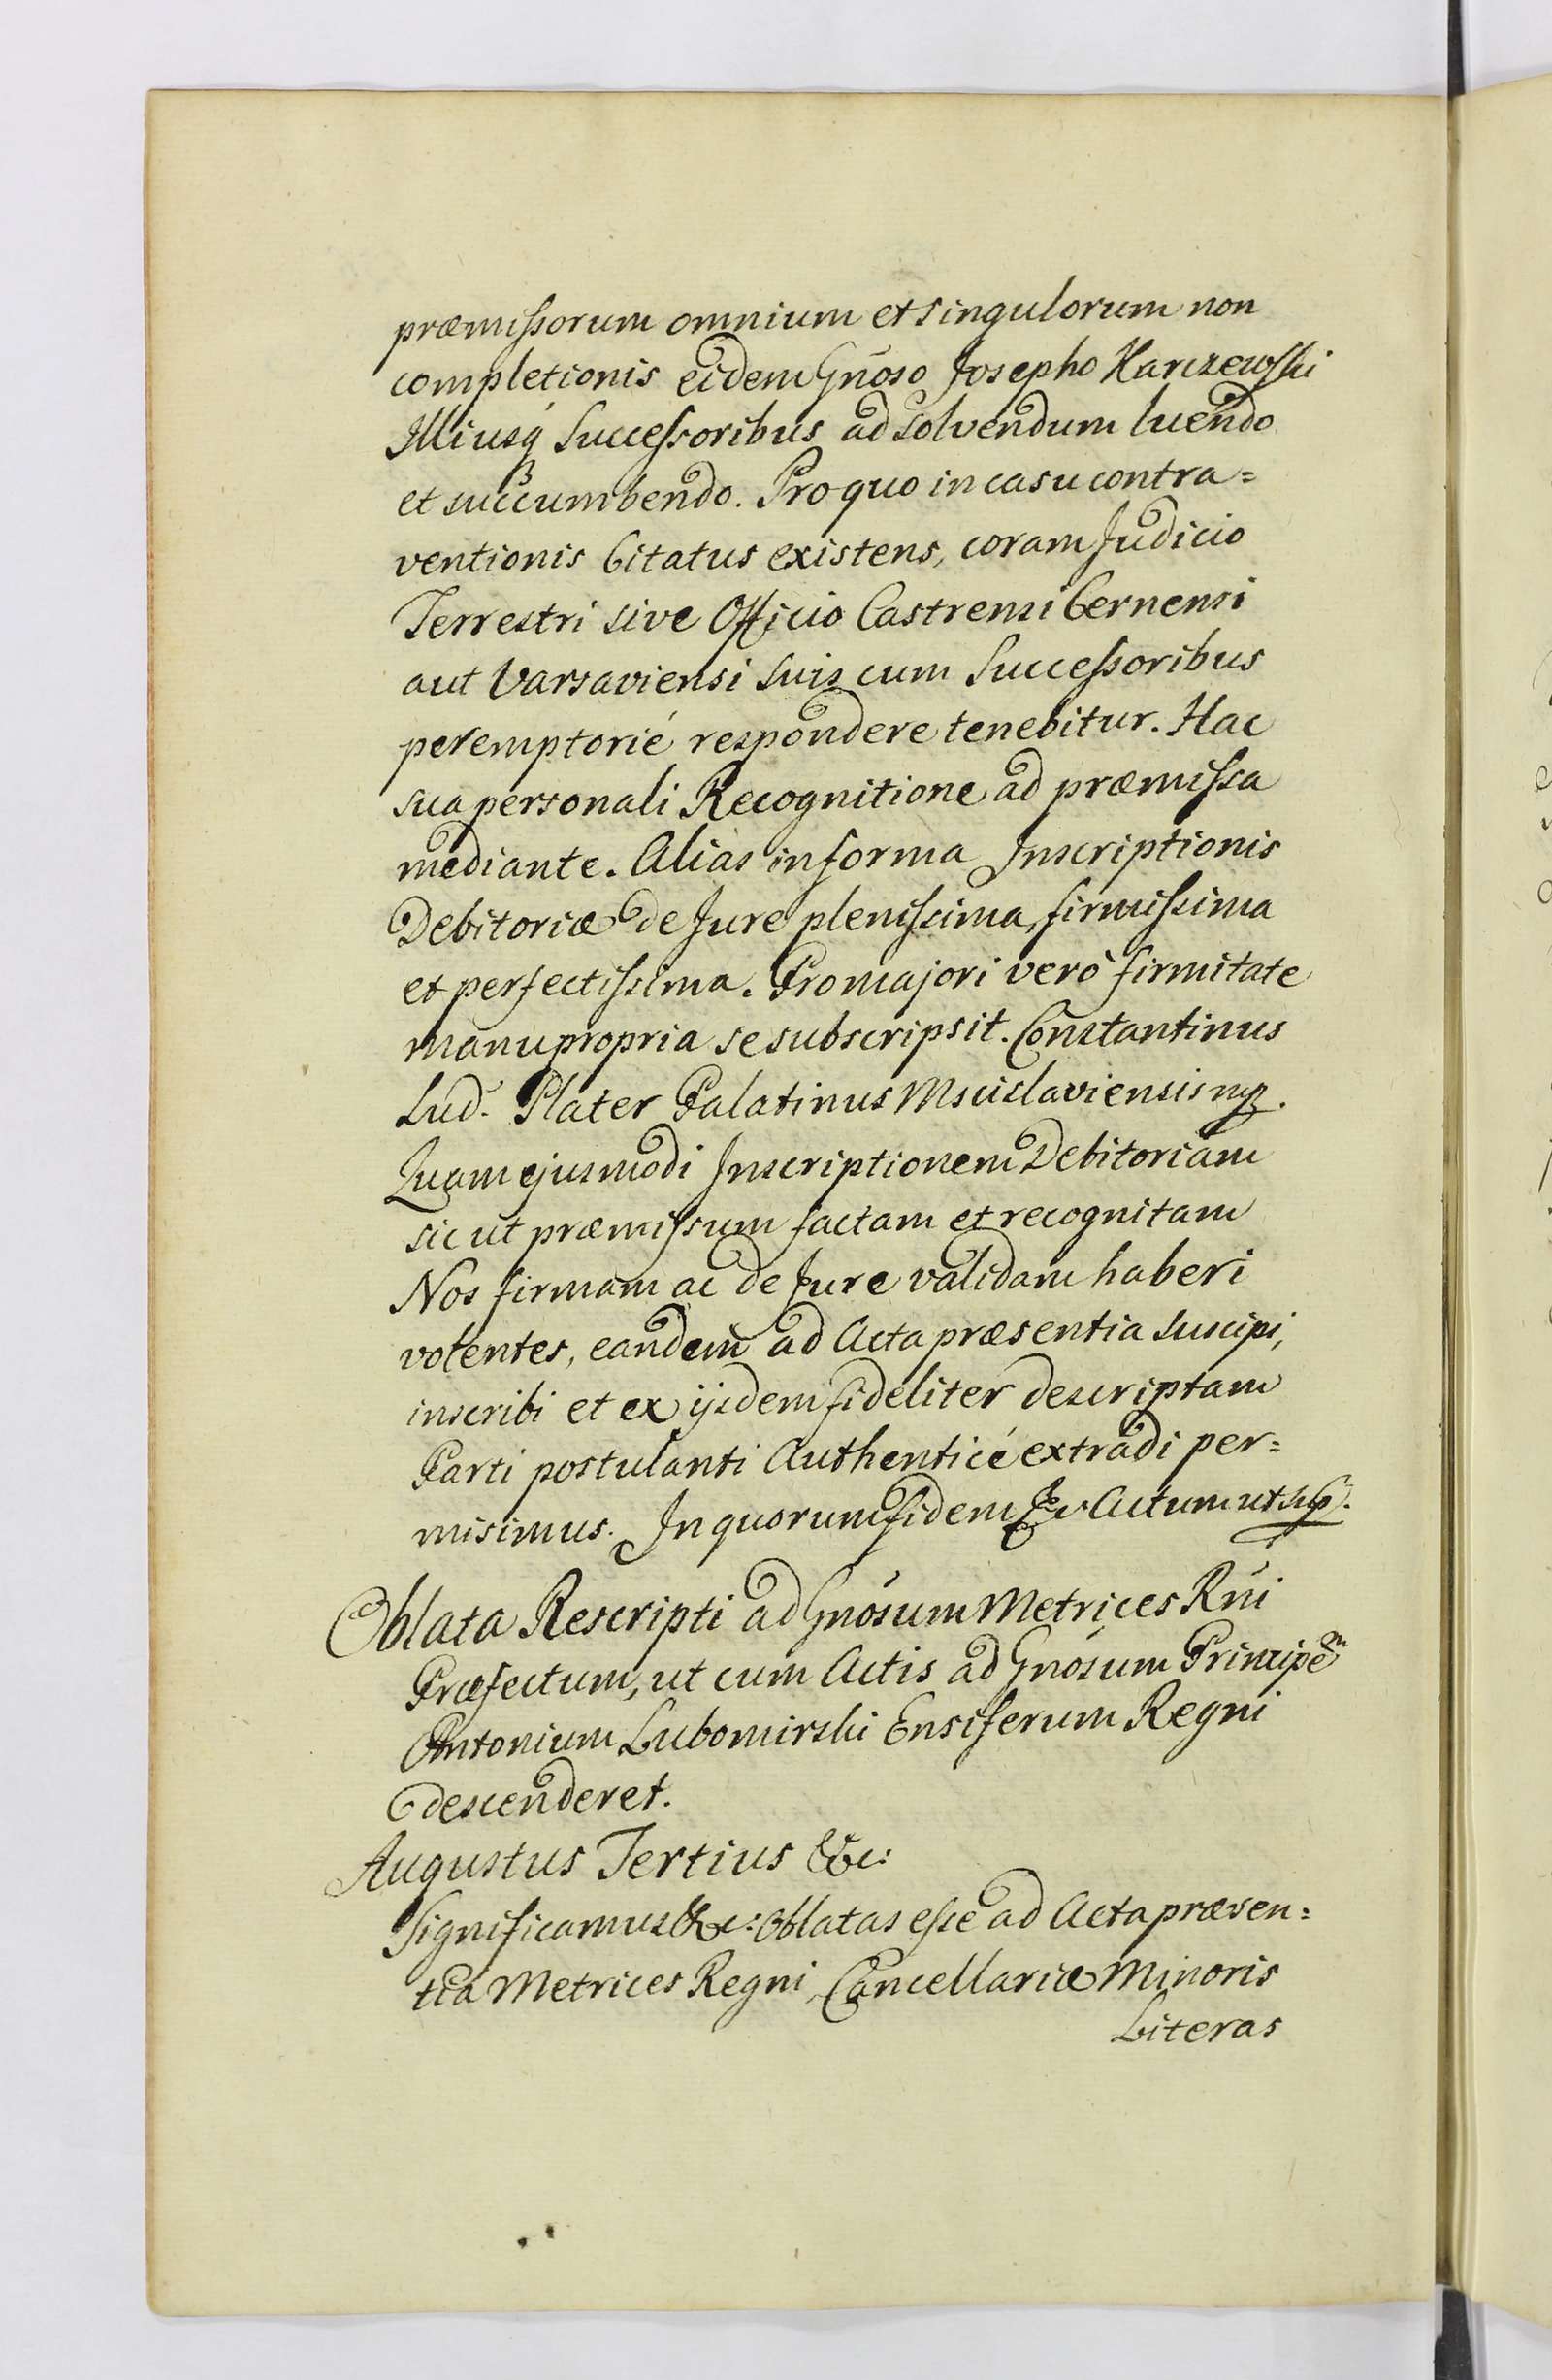 præmissorum omnium et singulorum non
completionis eidem Gnoso Josepho Karczewski
Illiusq Successoribus ad solvendum luendo
et succumbendo. Pro quo in casu contra=
ventionis Citatus existens, coram Judicio
Terrestri sive Officio Castrensi Cernensi
aut Varsaviensi suis cum Successoribus
peremptorié respondere tenebitur. Hac
sua personali Recognitione ad præmissa
mediante. Alias in forma Inscriptionis
Debitoriæ de Jure plenissima, firmissima
et perfectissima. Pro majori verò firmitate
manu propria se subscripsit. Constantinus
Lud. Plater Palatinus Mscislaviensis mp.
Quam ejusmodi Inscriptionem Debitoriam
sicut præmissum factam et recognitam
Nos firmam ac de Jure validam haberi
volentes, eandem ad Acta præsentia suscipi,
inscribi et ex ijsdem fideliter descriptam
Parti postulanti Authenticé extradi per=
misimus. In quorum fidem &c Actum ut sup.
Oblata Rescripti ad Gnosum Metrices Rni
Præfectum, ut cum Actis ad Gnosum Principem
Antonium Lubomirski Ensiferum Regni
descenderet.
Augustus Tertius &c:
Significamus &c: Oblatas esse ad Acta præsen=
tia Metrices Regni Cancellariæ Minoris
Literas